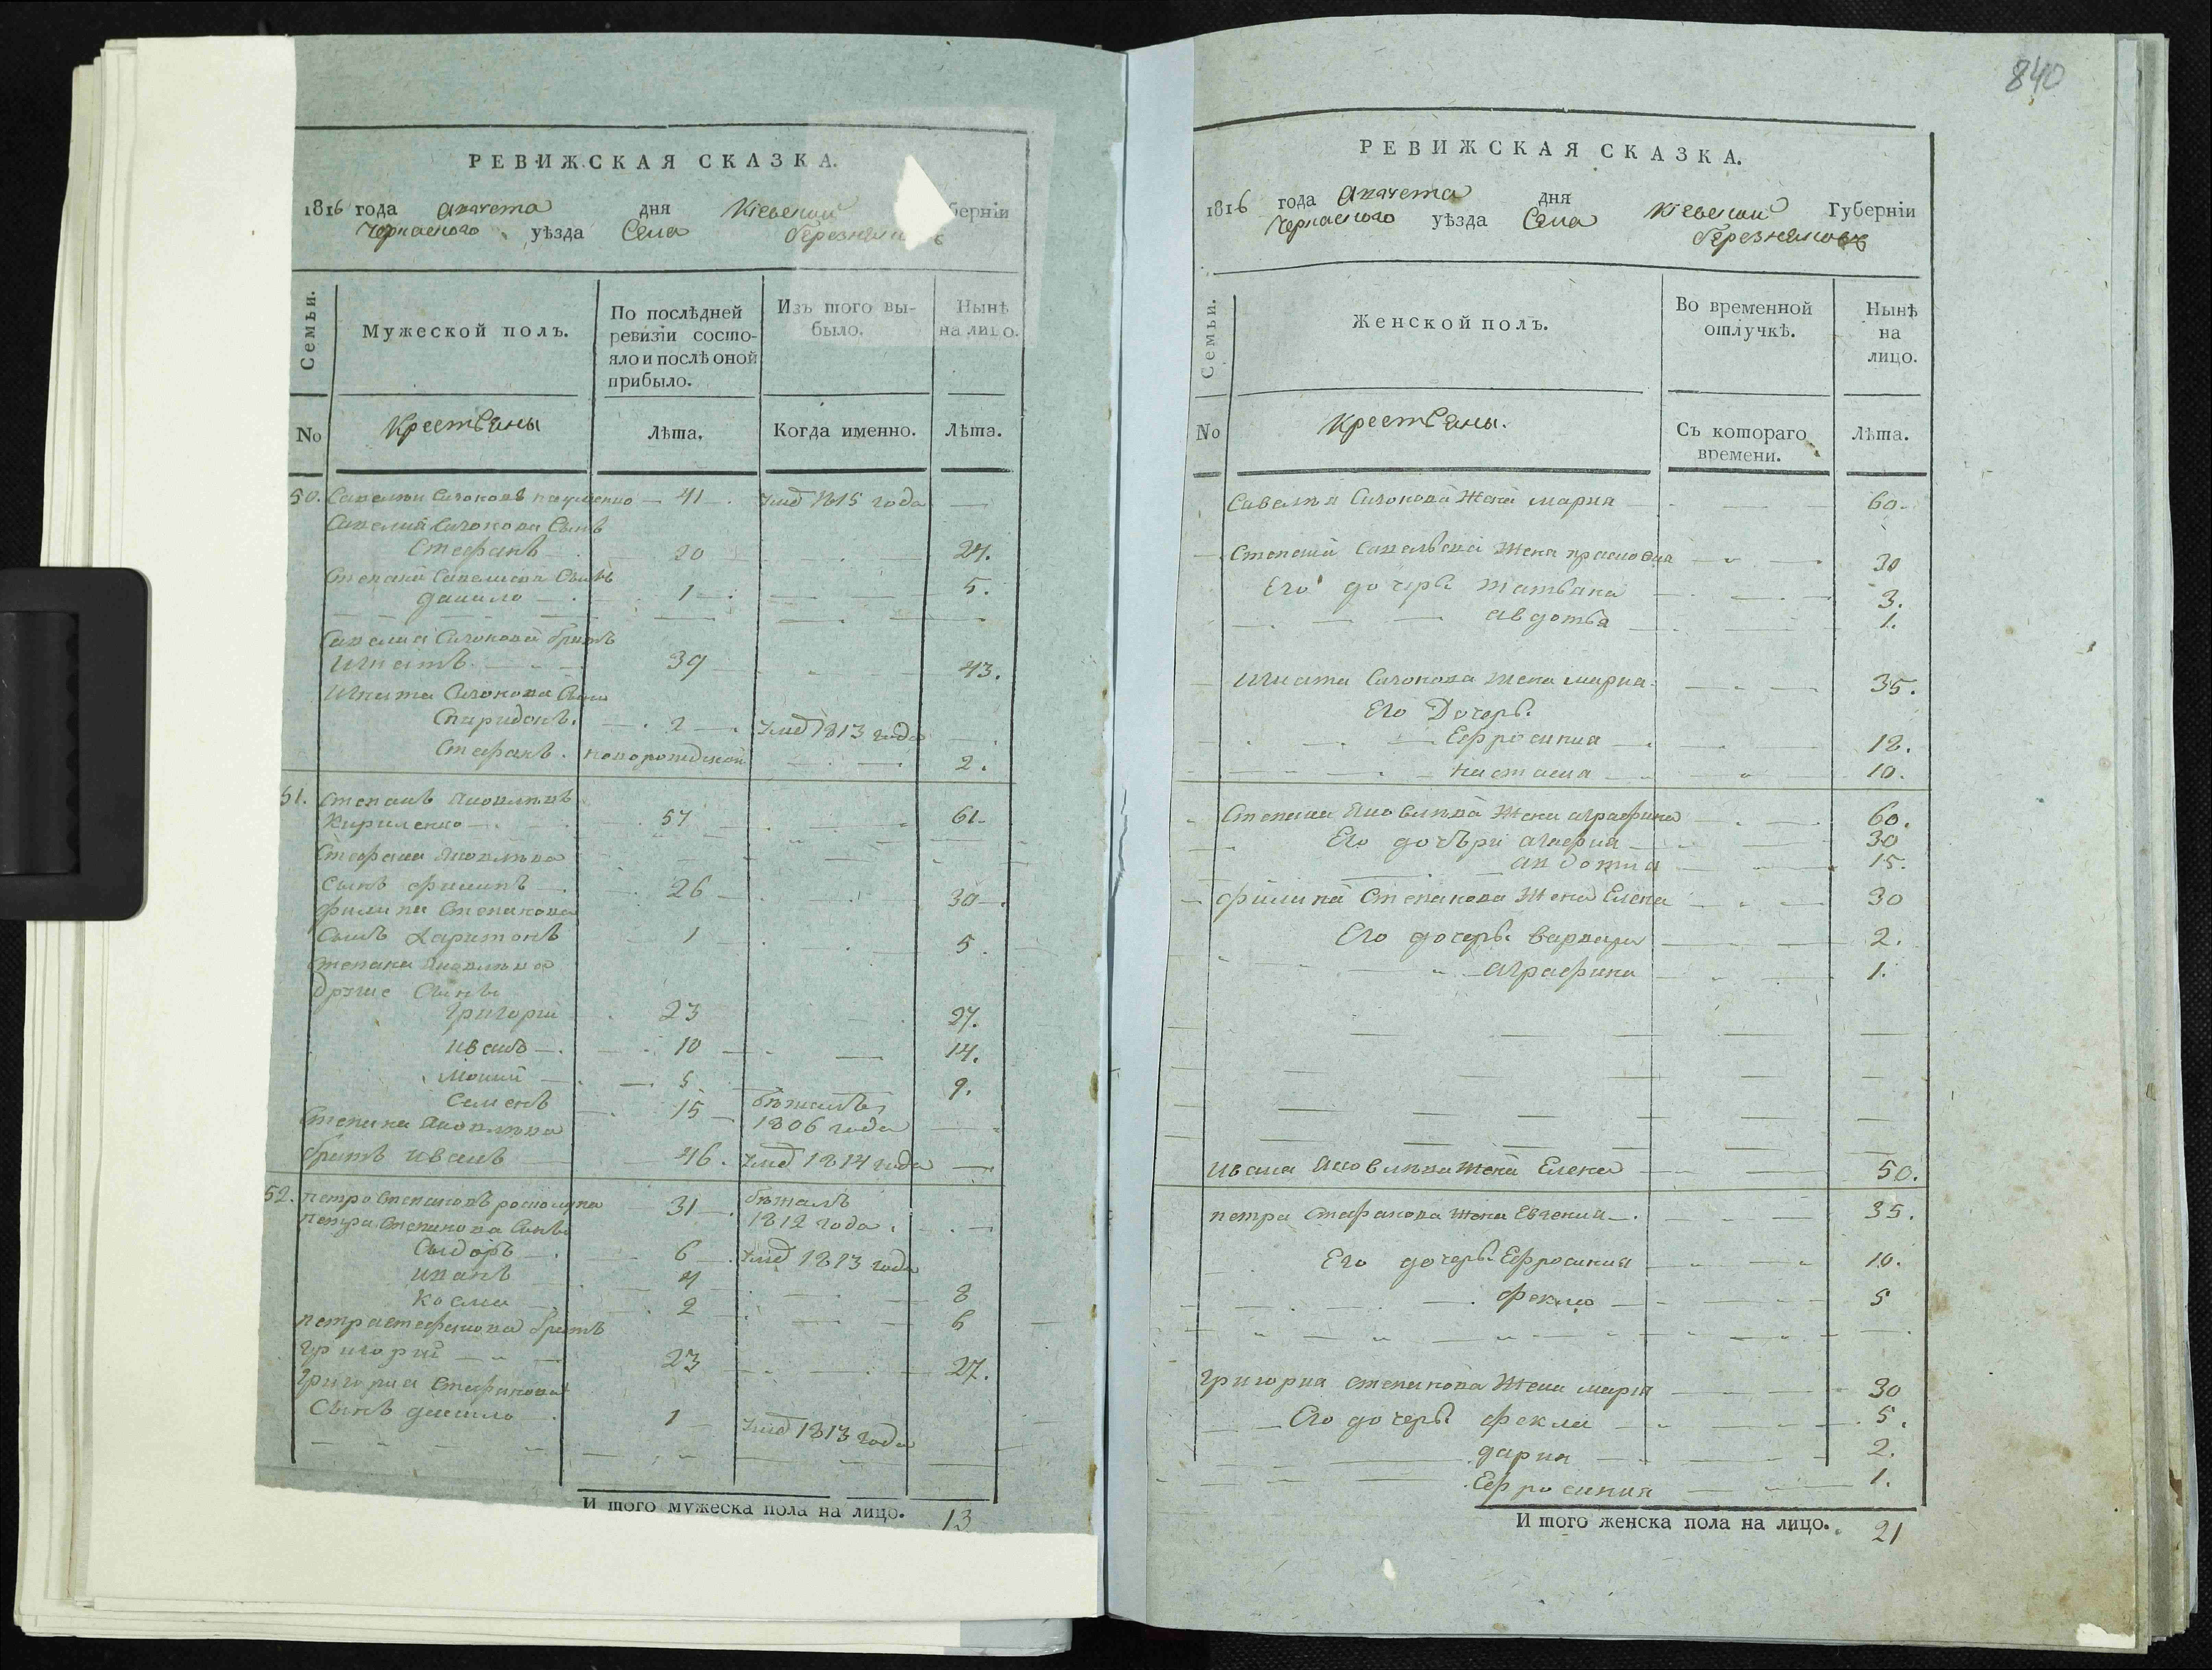 РЕВИЖСКАЯ СКАЗКА.
1816 года Августа дня Кіевской берніи
Черкаского уѣзда Села Березняков
Семьи.
Мужеской полъ.
По послѣдней ревизіи состояло и послѣ оной прибыло.
Изъ того выбыло.
Нынѣ на лицо.
№ Крестьяны Лѣта. Когда именно. Лѣта.
50. Савелий 41 умер 1815 года
Савелия Сын
Стефанъ 20 24.
Степана Савелиева Сынъ
данило 1 5.
Савелия братъ
Игнатъ 39 43.
Игната Сыны
Спиридонъ. 2 умер 1813 года
Стефанъ. новорожденой 2.
51. Степанъ Яковлевъ
Кириленко 57 61.
Стефана Яковлева
Сынъ филипъ 26 30
филипа Степанова
Сынъ Харитонъ 1 5.
Степана Яковлева
другие Сыны
Григорий 23 27.
Иванъ 10 14.
Мокий 5 9.
Семенъ 15 бежалъ 1806 года
Степана Яковлева
братъ Иванъ 46. умер 1814 года
52. петро Степановъ 31 бежалъ 1812 года
петра Степанова Сыны
Сыдоръ 6 умер 1813 года
Иванъ 4 8
Косма 2 6
петра Стефанова братъ
Григорий 23 27.
Григория Стефанова
Сынъ данило 1 умер 1813 года
И того мужеска пола на лицо. 13
840
РЕВИЖСКАЯ СКАЗКА.
1816 года Августа дня Кіевской Губерніи
Черкаского уѣзда Села Березняковъ
Семьи.
Женской полъ.
Во временной отлучкѣ.
Нынѣ на лицо.
№ Крестьяны. Съ котораго времени. Лѣта.
Савелия жена мария 60.
Степана Савельева жена прасковия 30
Его дочери татьяна 3.
авдотья 1.
Игната жена мария 35.
Его Дочери
Ефросиния 12.
настасия 10.
Степана Яковлева жена аграфина 60.
Его дочѣри агафия 30
авдотия 15.
филипа Степанова жена Елена 30
Его дочери варвара 2.
аграфина 1.
Ивана Яковлева жена Елена 50.
петра Стефанова жена Евгения 35.
Его дочери Ефросиния 10.
фекла 5
Григория Степанова жена мария 30
Его дочери фекла 5.
дария 2.
Ефросиния 1.
И того женска пола на лицо. 21